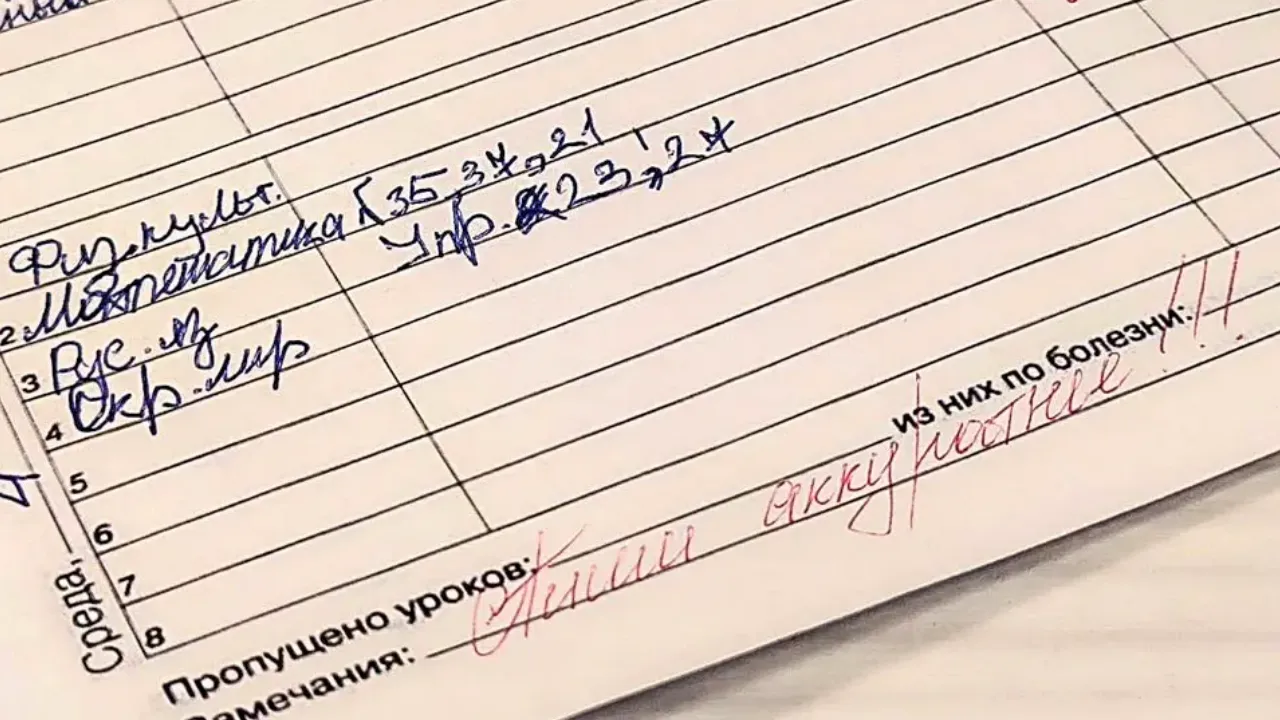 Физ.культ.
2 Математика §35 37, 21
Упр. 23, 24
3 Рус. яз
4 Окр. мир
5
6
7
8
Среда,
Пропущено уроков:
из них по болезни:
Замечания:
Пиши аккуратнее!!!